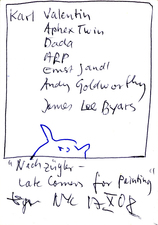 Karl Valentin
Aphex Twin
Dada
ARP
Ernst Jandl
Andy Goldworthy
James Lee Byars
"Nachzügler –
Late Comers for Painting"
NYC 17 X 08